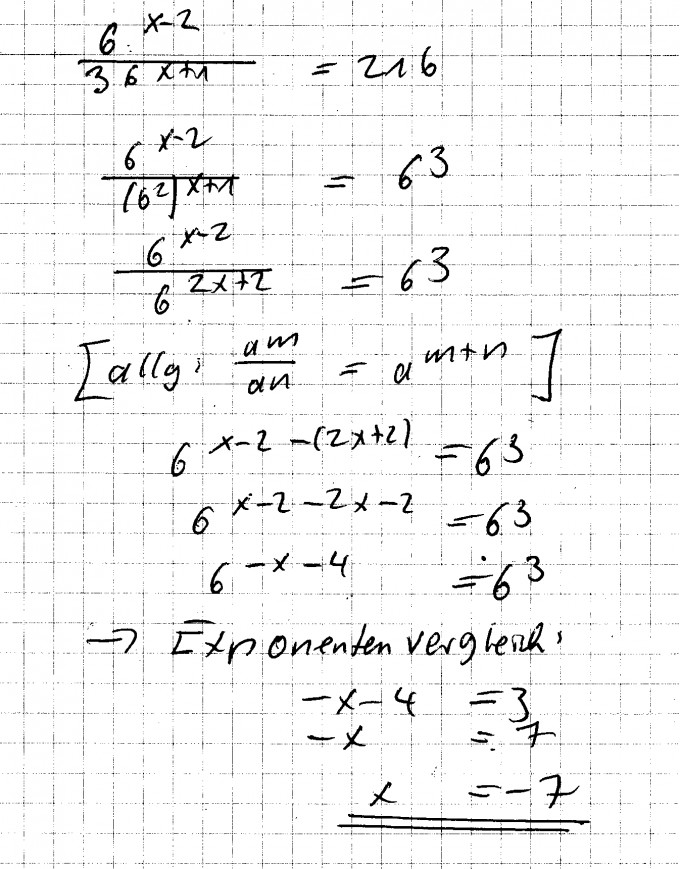 6^(x-2) / 36^(x+1) = 216
6^(x-2) / (6²)^(x+1) = 6³
6^(x-2) / 6^(2x+2) = 6³
[allg: a^m / a^n = a^(m+n)]
6^(x-2-(2x+2)) = 6³
6^(x-2-2x-2) = 6³
6^(-x-4) = 6³
→ Exponentenvergleich:
-x-4 = 3
-x = 7
x = -7